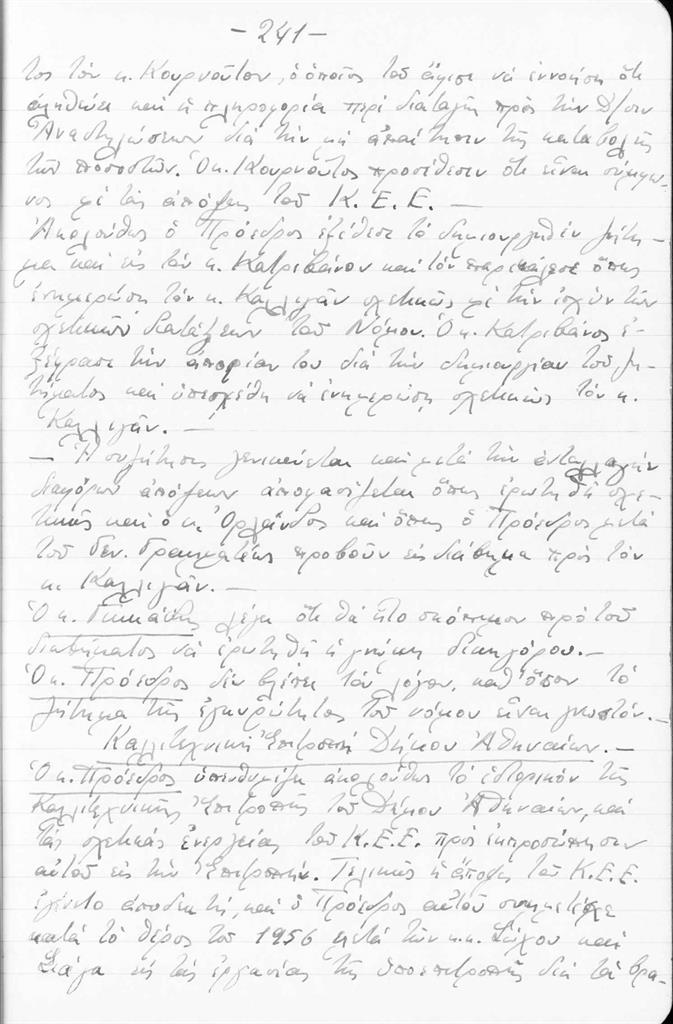 - 241 -
τος τόν κ. Κουρνοῦτον, ὁ ὁποῖος τοῦ ἄφισε νά ἐννοήση ὅτι
ἀληθεύει καί ἡ πληροφορία περί διαταγῆς πρός τήν Δ/σιν
Ἀναστηλώσεων διά τήν μή ἀπαίτησιν τῆς καταβολῆς
τῶν ποσοστῶν. Ὁ κ. Κουρνοῦτος προσέθεσεν ὅτι εἶναι σύμφω-
νος μέ τάς ἀπόψεις τοῦ Κ.Ε.Ε. —
Ἀκολούθως ὁ Πρόεδρος ἐξέθεσε τό δημιουργηθέν ζήτη-
μα καί εἰς τόν κ. Κατριβάνον καί τόν παρεκάλεσε ὅπως
ἐνημερώση τόν κ. Καλλιγᾶν σχετικῶς μέ τήν ἰσχύν τῶν
σχετικῶν διατάξεων τοῦ Νόμου. Ὁ κ. Κατριβάνος ἐ-
ξέφρασε τήν ἀπορίαν του διά τήν δημιουργίαν τοῦ ζη-
τήματος καί ὑπεσχέθη νά ἐνημερώση σχετικῶς τόν κ.
Καλλιγᾶν. —
— Ἡ συζήτησις γενικεύεται καί μετά τήν ἀνταλλαγήν
διαφόρων ἀπόψεων ἀποφασίζεται ὅπως ἐρωτηθῆ σχε-
τικῶς καί ὁ κ. Ὀρλάνδος καί ὅπως ὁ Πρόεδρος μετά
τοῦ Γεν. Γραμματέως προβοῦν εἰς διάβημα πρός τόν
κ. Καλλιγᾶν. —
Ὁ κ. λέγει ὅτι θά ἦτο σκόπιμον πρό τοῦ
διαβήματος νά ἐρωτηθῆ ἡ γνώμη δικηγόρου. —
Ὁ κ. Πρόεδρος δέν βλέπει τόν λόγον, καθ' ὅσον τό
ζήτημα τῆς ἐγκυρότητος τοῦ νόμου εἶναι γνωστόν. —
Καλλιτεχνική Ἐπιτροπή Δήμου Ἀθηναίων. —
Ὁ κ. Πρόεδρος ὑπενθυμίζει ἀκολούθως τό ἱστορικόν τῆς
Καλλιτεχνικῆς Ἐπιτροπῆς τοῦ Δήμου Ἀθηναίων, καί
τάς σχετικάς ἐνεργείας τοῦ Κ.Ε.Ε. πρός ἐκπροσώπησιν
αὐτοῦ εἰς τήν Ἐπιτροπήν. Τελικῶς ἡ ἄποψις τοῦ Κ.Ε.Ε.
ἐγένετο ἀποδεκτή, καί ὁ Πρόεδρος αὐτοῦ συμμετέσχε
κατά τό θέρος τοῦ 1956 μετά τῶν κ.κ. Σώχου καί
εἰς τάς ἐργασίας τῆς ὑποεπιτροπῆς διά τά βρα-